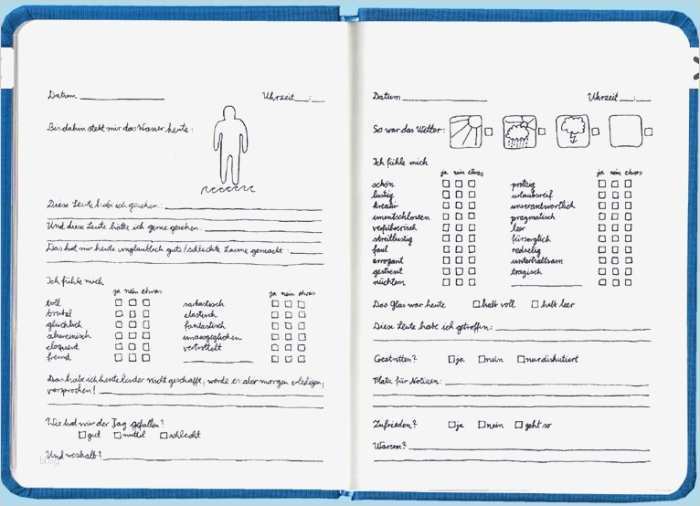 Datum Uhrzeit :
Bis dahin steht mir das Wasser heute:
Diese Leute habe ich gesehen:
Und diese Leute hätte ich gerne gesehen:
Das hat mir heute unglaublich gute/schlechte Laune gemacht:
Ich fühle mich
ja nein etwas ja nein etwas
toll sarkastisch
brutal elastisch
glücklich fantastisch
unausgeglichen
eloquent vertrottelt
fremd
Das habe ich heute leider nicht geschafft, werde es aber morgen erledigen,
versprochen!
Wie hat mir der Tag gefallen?
gut mittel schlecht
Und weshalb?
Datum Uhrzeit :
So war das Wetter:
Ich fühle mich
ja nein etwas ja nein etwas
schön protzig
lustig urlaubsreif
kreativ unverantwortlich
unentschlossen pragmatisch
verführerisch leer
streitlustig fürsorglich
faul redselig
arrogant unterhaltsam
gestresst tragisch
nüchtern
Das Glas war heute halb voll halb leer
Diese Leute habe ich getroffen:
Gestritten? ja nein nur diskutiert
Platz für Notizen:
Zufrieden? ja nein geht so
Warum?